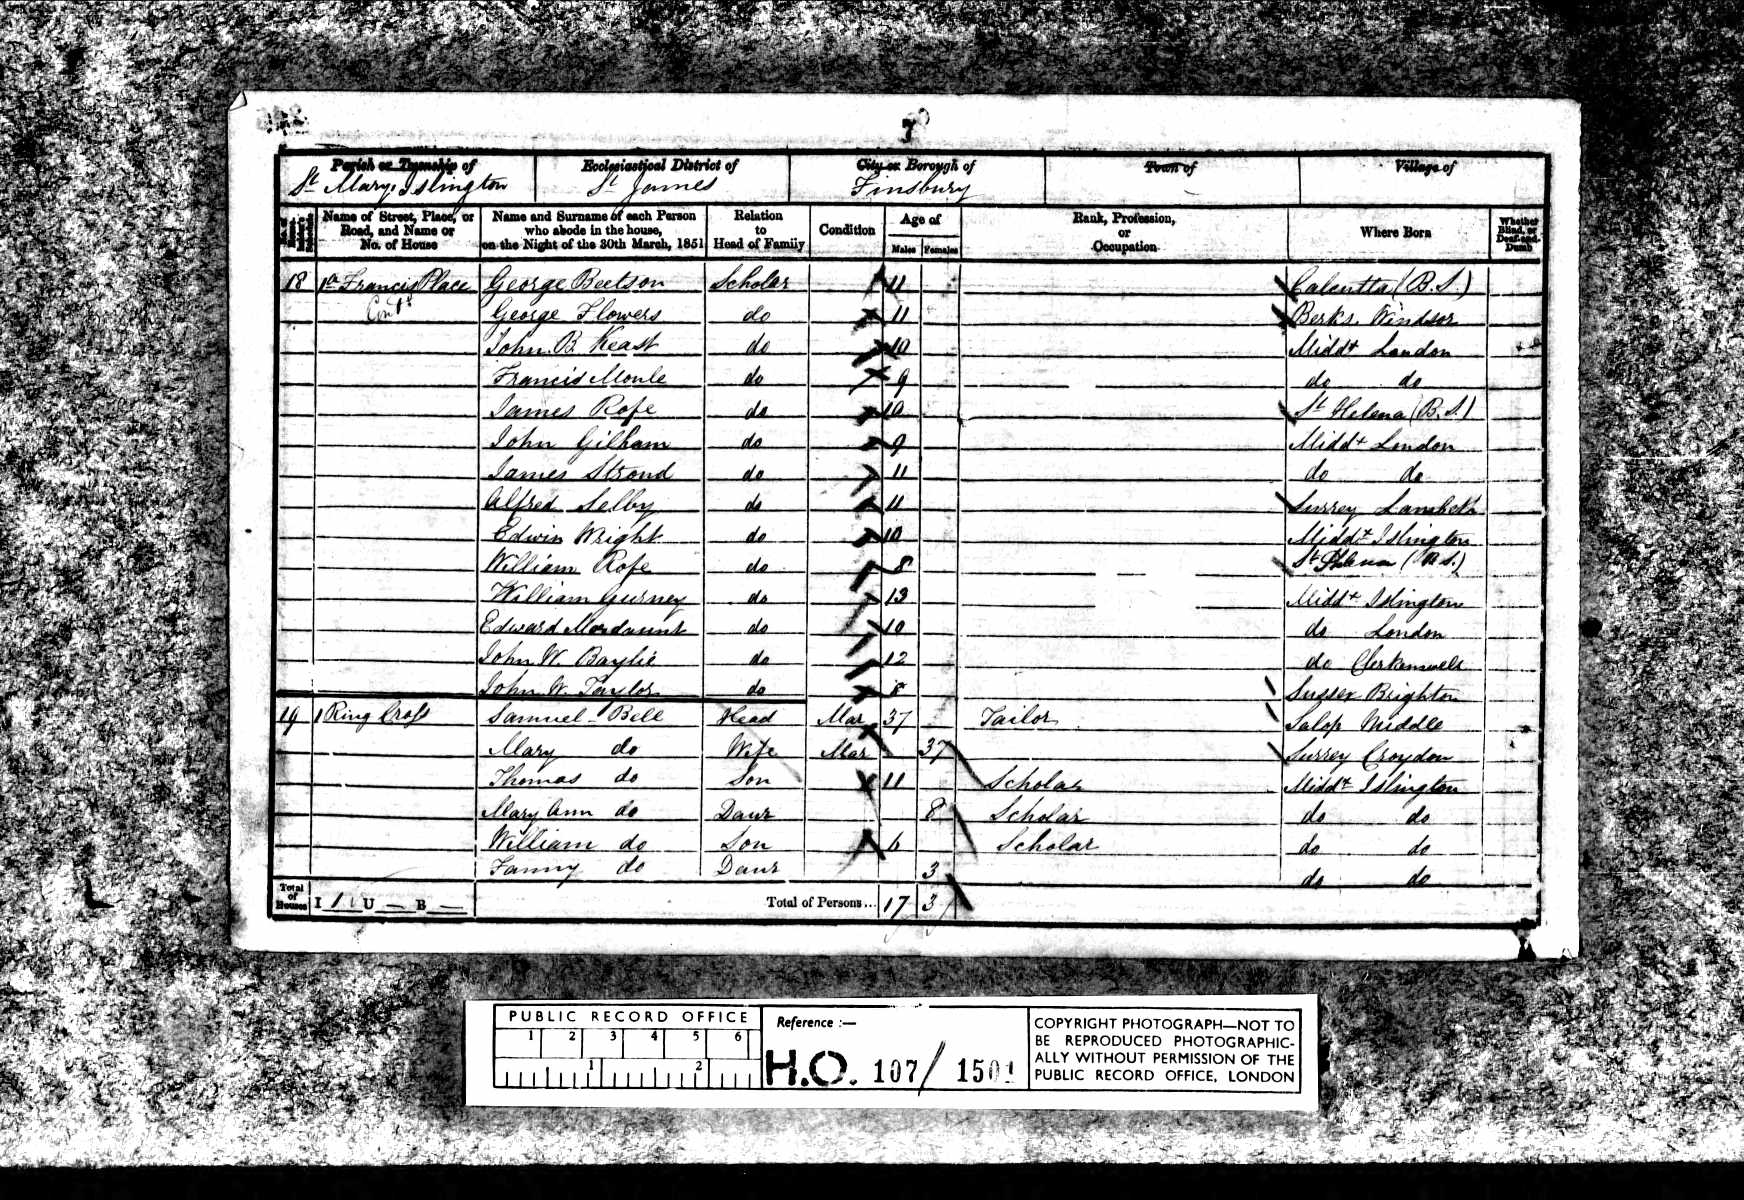 7
Parish or Township of Ecclesiastical District of City or Borough of Town of Village of
St Mary Islington St James Finsbury
Name of Street, Place, or Road, and Name or No. of House
Name and Surname of each Person who abode in the house, on the Night of the 30th March, 1851
Relation to Head of Family
Condition
Age of
Males Females
Rank, Profession, or Occupation
Where Born
Whether Blind, or Deaf-and-Dumb
18 1a Francis Place George Beetson Scholar 11 Calcutta (B.S.)
Contd George Flowers do 11 Berks. Windsor
John B Keast do 10 Middx London
Francis Moule do 9 do do
James Rofe do 10 St Helena (B.S.)
John Gilham do 9 Middx London
James Stroud do 11 do do
Alfred Selby do 11 Surrey Lambeth
Edwin Wright do 10 Middx Islington
William Rofe do 8 St Helena (B.S.)
William Gurney do 13 Middx Islington
Edward Mordaunt do 10 do London
John W. Baylie do 12 do Clerkenwell
John W. Taylor do 8 Sussex Brighton
19 1 Ring Croft Samuel Bell Head Mar 37 Tailor Salop Middle
Mary do Wife Mar 37 Surrey Croydon
Thomas do Son 11 Scholar Middx Islington
Mary Ann do Daur 8 Scholar do do
William do Son 6 Scholar do do
Fanny do Daur 3 do do
Total of Houses I 1 U — B — Total of Persons... 17 3
PUBLIC RECORD OFFICE
1 2 3 4 5 6
1 2
Reference :—
H.O. 107/1501
COPYRIGHT PHOTOGRAPH—NOT TO
BE REPRODUCED PHOTOGRAPHIC-
ALLY WITHOUT PERMISSION OF THE
PUBLIC RECORD OFFICE, LONDON